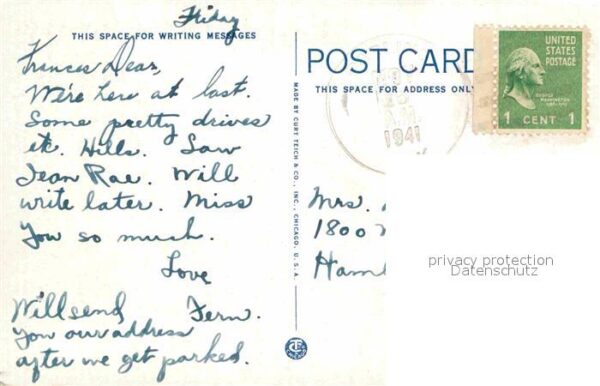 Friday
THIS SPACE FOR WRITING MESSAGES
Frances Dear,
We're here at last.
Some pretty drives
etc. Hills. Saw
Jean Rae. Will
write later. Miss
you so much.
Love
Fern.
Will send
you our address
after we get parked.
MADE BY CURT TEICH & CO., INC., CHICAGO, U.S.A.
POST CARD
THIS SPACE FOR ADDRESS ONLY
1941
UNITED
STATES
POSTAGE
GEORGE
WASHINGTON
1 CENT 1
Mrs.
1800
Ham
privacy protection
Datenschutz